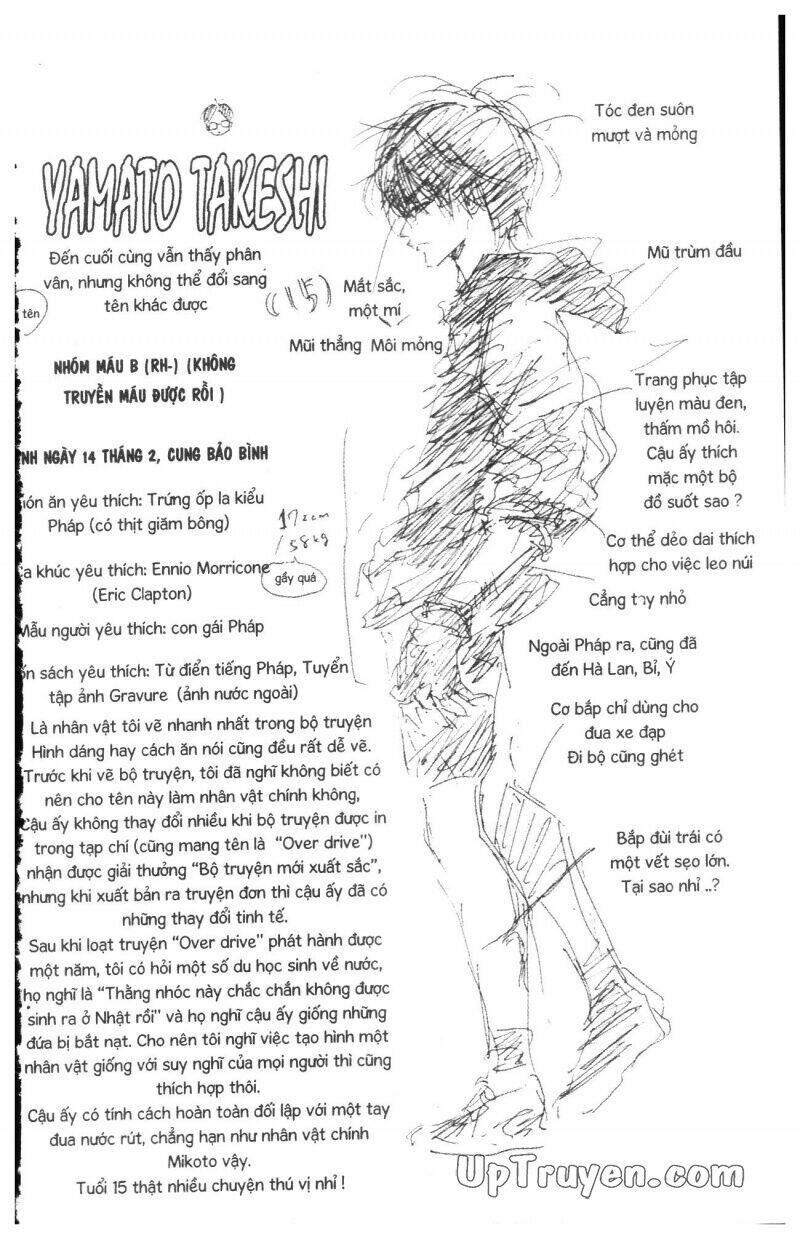 YAMATO TAKESHI
Đến cuối cùng vẫn thấy phân
vân, nhưng không thể đổi sang
tên khác được
tên
((15))
NHÓM MÁU B (RH-) (KHÔNG
TRUYỀN MÁU ĐƯỢC RỒI )
NH NGÀY 14 THÁNG 2, CUNG BẢO BÌNH
ón ăn yêu thích: Trứng ốp la kiểu
Pháp (có thịt giăm bông)
a khúc yêu thích: Ennio Morricone
(Eric Clapton)
Mẫu người yêu thích: con gái Pháp
ốn sách yêu thích: Từ điển tiếng Pháp, Tuyển
tập ảnh Gravure (ảnh nước ngoài)
Là nhân vật tôi vẽ nhanh nhất trong bộ truyện
Hình dáng hay cách ăn nói cũng đều rất dễ vẽ.
Trước khi vẽ bộ truyện, tôi đã nghĩ không biết có
nên cho tên này làm nhân vật chính không,
Cậu ấy không thay đổi nhiều khi bộ truyện được in
trong tạp chí (cũng mang tên là "Over drive")
nhận được giải thưởng "Bộ truyện mới xuất sắc",
nhưng khi xuất bản ra truyện đơn thì cậu ấy đã có
những thay đổi tinh tế.
Sau khi loạt truyện "Over drive" phát hành được
một năm, tôi có hỏi một số du học sinh về nước,
họ nghĩ là "Thằng nhóc này chắc chắn không được
sinh ra ở Nhật rồi" và họ nghĩ cậu ấy giống những
đứa bị bắt nạt. Cho nên tôi nghĩ việc tạo hình một
nhân vật giống với suy nghĩ của mọi người thì cũng
thích hợp thôi.
Cậu ấy có tính cách hoàn toàn đối lập với một tay
đua nước rút, chẳng hạn như nhân vật chính
Mikoto vậy.
Tuổi 15 thật nhiều chuyện thú vị nhỉ !
Tóc đen suôn
mượt và mỏng
Mũ trùm đầu
Mắt sắc,
một mí
Mũi thẳng Môi mỏng
Trang phục tập
luyện màu đen,
thấm mồ hôi.
Cậu ấy thích
mặc một bộ
đồ suốt sao ?
/58kg
gầy quá
Cơ thể dẻo dai thích
hợp cho việc leo núi
Cẳng tay nhỏ
Ngoài Pháp ra, cũng đã
đến Hà Lan, Bỉ, Ý
Cơ bắp chỉ dùng cho
đua xe đạp
Đi bộ cũng ghét
Bắp đùi trái có
một vết sẹo lớn.
Tại sao nhỉ ..?
UpTruyen.com